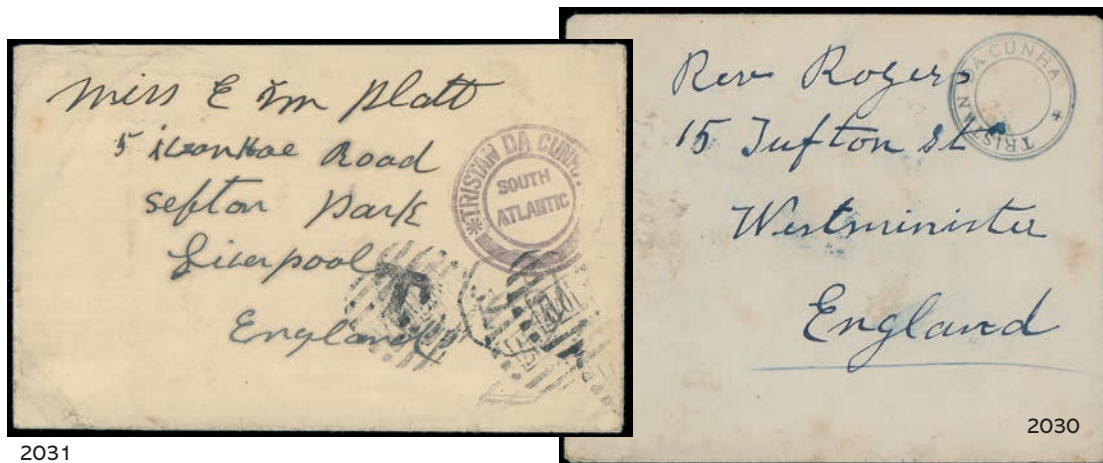 Miss E & M Platt
5 Ivanhoe Road
Sefton Park
Liverpool
England
*TRISTAN DA CUNHA
SOUTH
ATLANTIC
2031
Rev Rogers
15 Tufton St
Westminister
England
TRISTAN DA CUNHA *
2030